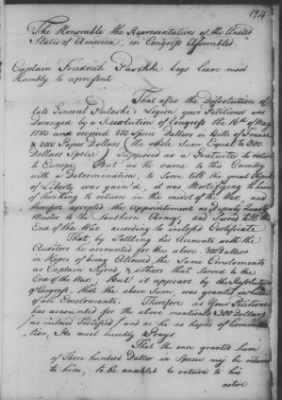 194
The Honorable the Representatives of the United
States of America, in Congress Assembled.
Captain Friedrich Paschke begs leave most
Humbly to represent
That after the Dissolution of
late General Pulaski's Legion your Petitioner was
Deranged by a Resolution of Congress the 16th of May
1780 and received 250 Spice Dollars in Bills of France
& 2000 Paper Dollars the whole Sum Equal to 300
Dollars Specie / Supposed as a Gratuity to return
to Europe. But as he came to this Country
with a Determination, to Serve till the great Object
of Liberty was gain'd, it was Mortifying to him
of thinking to return in the midst of the War, and
therefore accepted the Appointment as Deputy Quarter
Master to the Southern Army, and Served till the
End of the War according to inclosed Certificate
That, by Settling his Accounts with the
Auditors he accounted for the above 300 Dollars
in Hopes of being Allowed the Same Emoluments
as Captain & others that Served to the
End of the War, But it appears by the Resolution
of Congress, that the above Sum, was granted in lieu
of all Emoluments. Therefore as Your Petitioner
has accounted for the above mentioned 300 Dollars /
as inclosed Certified / and as he has no hopes of Commuta-
tion, He most humbly Prays
That the once granted Sum
of Three hundred Dollars in Specie may be returned
to him, to be enabled to return to his
native